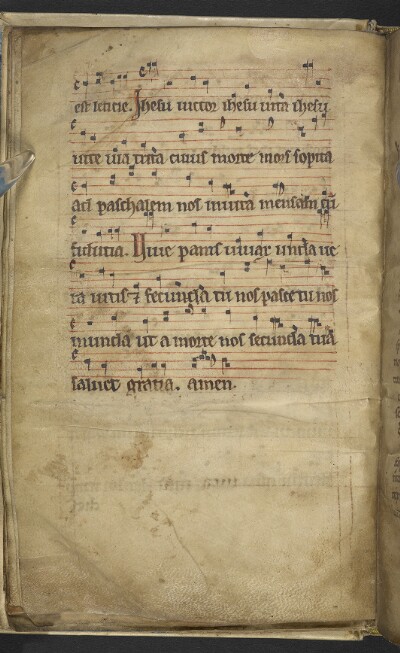 est letitie. Jhesu uictor ihesu uita ihesu
uite uia trita cuius morte mors sopita
ad paschalem nos inuita mensam cū
fiducia. Uiue panis uiuax unda ue
ra uitis ⁊ fecunda tu nos pasce tu nos
munda ut a morte nos secunda tua
saluet gratia. amen.